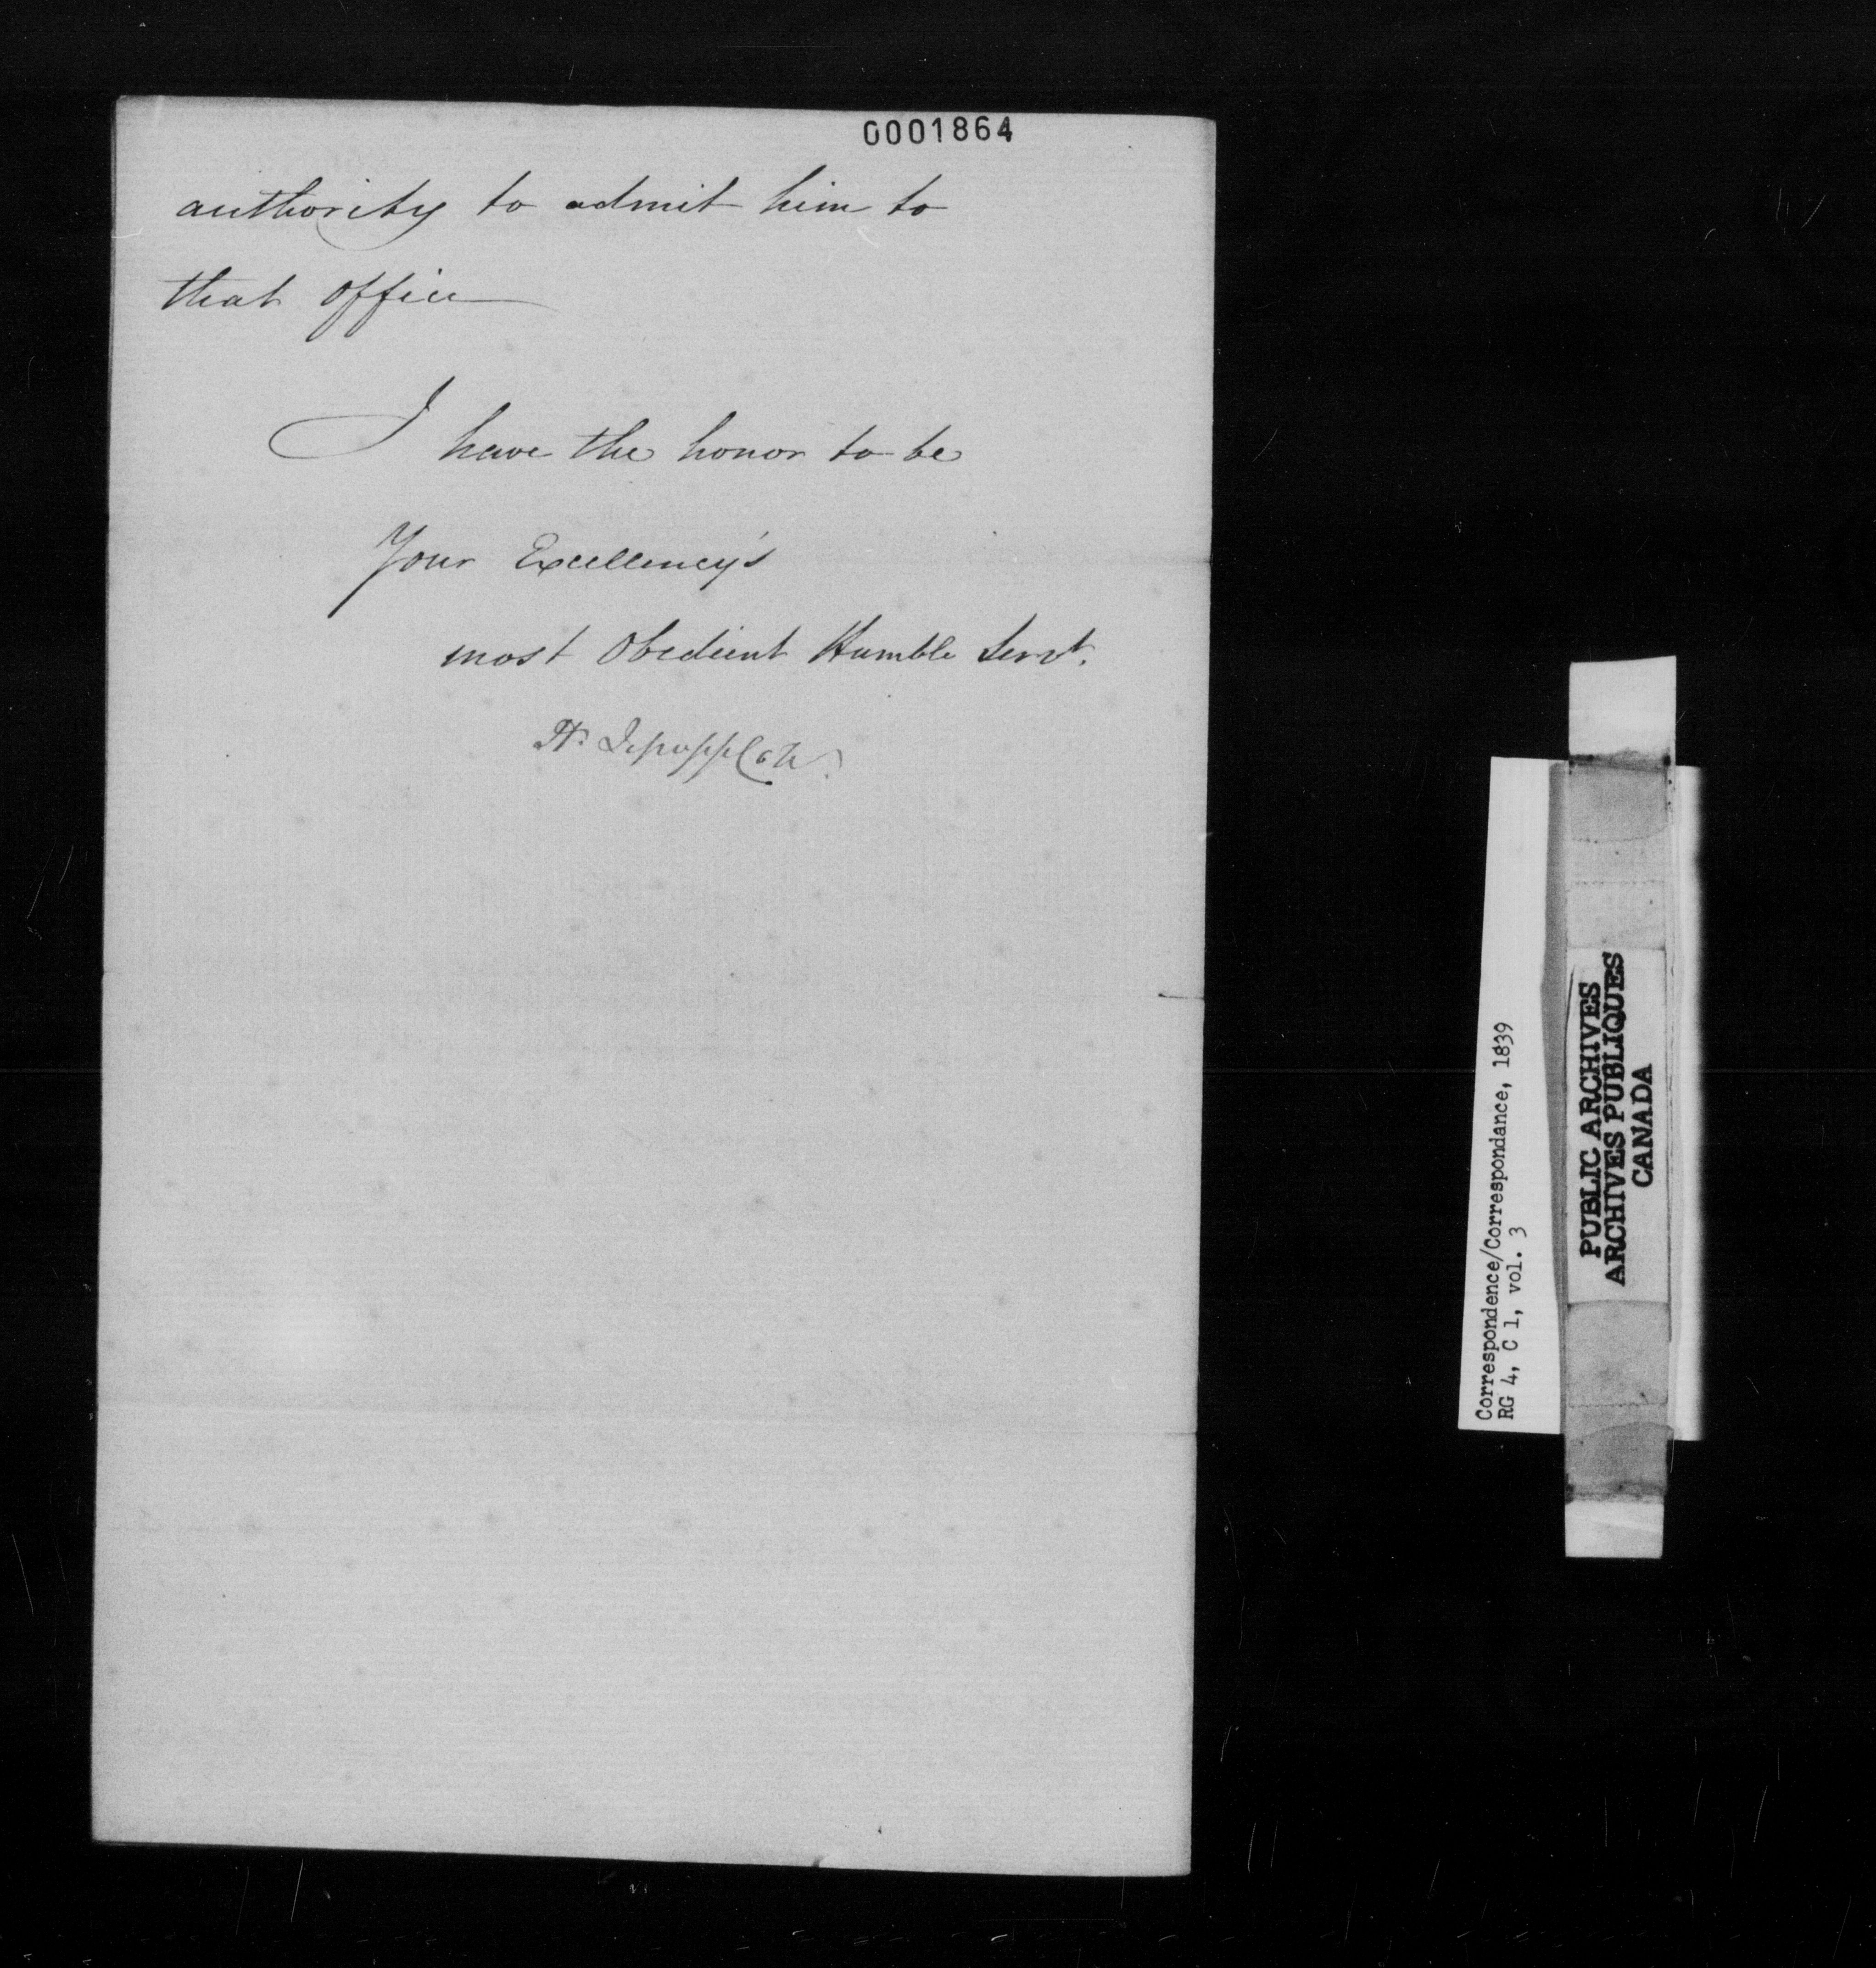 0001864
authority to admit him to
that office
I have the honor to be
Your Excellency's
most Obedient Humble Servt.
Correspondence/Correspondance, 1839
RG 4, C 1, vol. 3
PUBLIC ARCHIVES
ARCHIVES PUBLIQUES
CANADA